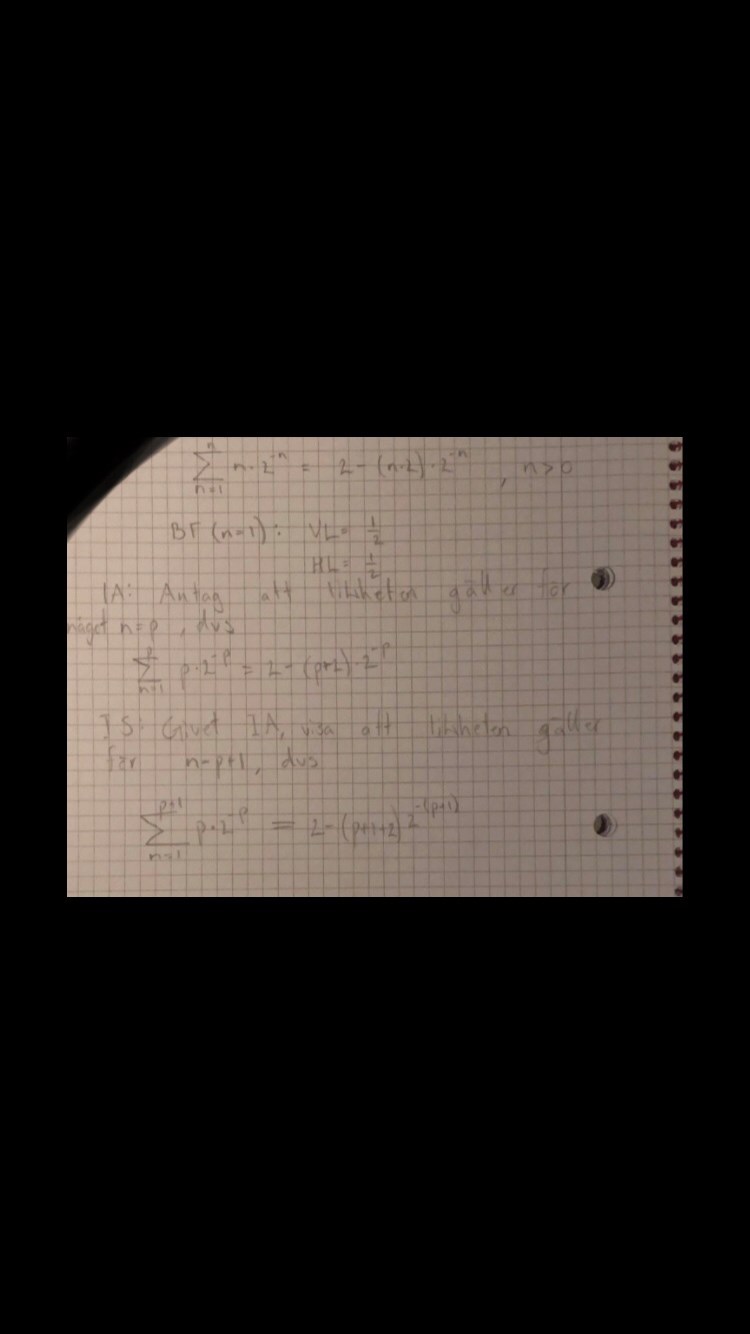 n
∑ n·2⁻ⁿ = 2-(n+2)·2⁻ⁿ , n>0
n=1
BF (n=1): VL= 1/2
HL= 1/2
IA: Antag att likheten gäller för
något n=p, dvs
p
∑ p·2⁻ᵖ = 2-(p+2)·2⁻ᵖ
n=1
IS: Givet IA, visa att likheten gäller
för n=p+1, dvs
p+1
∑ p·2⁻ᵖ = 2-(p+1+2)2⁻⁽ᵖ⁺¹⁾
n=1